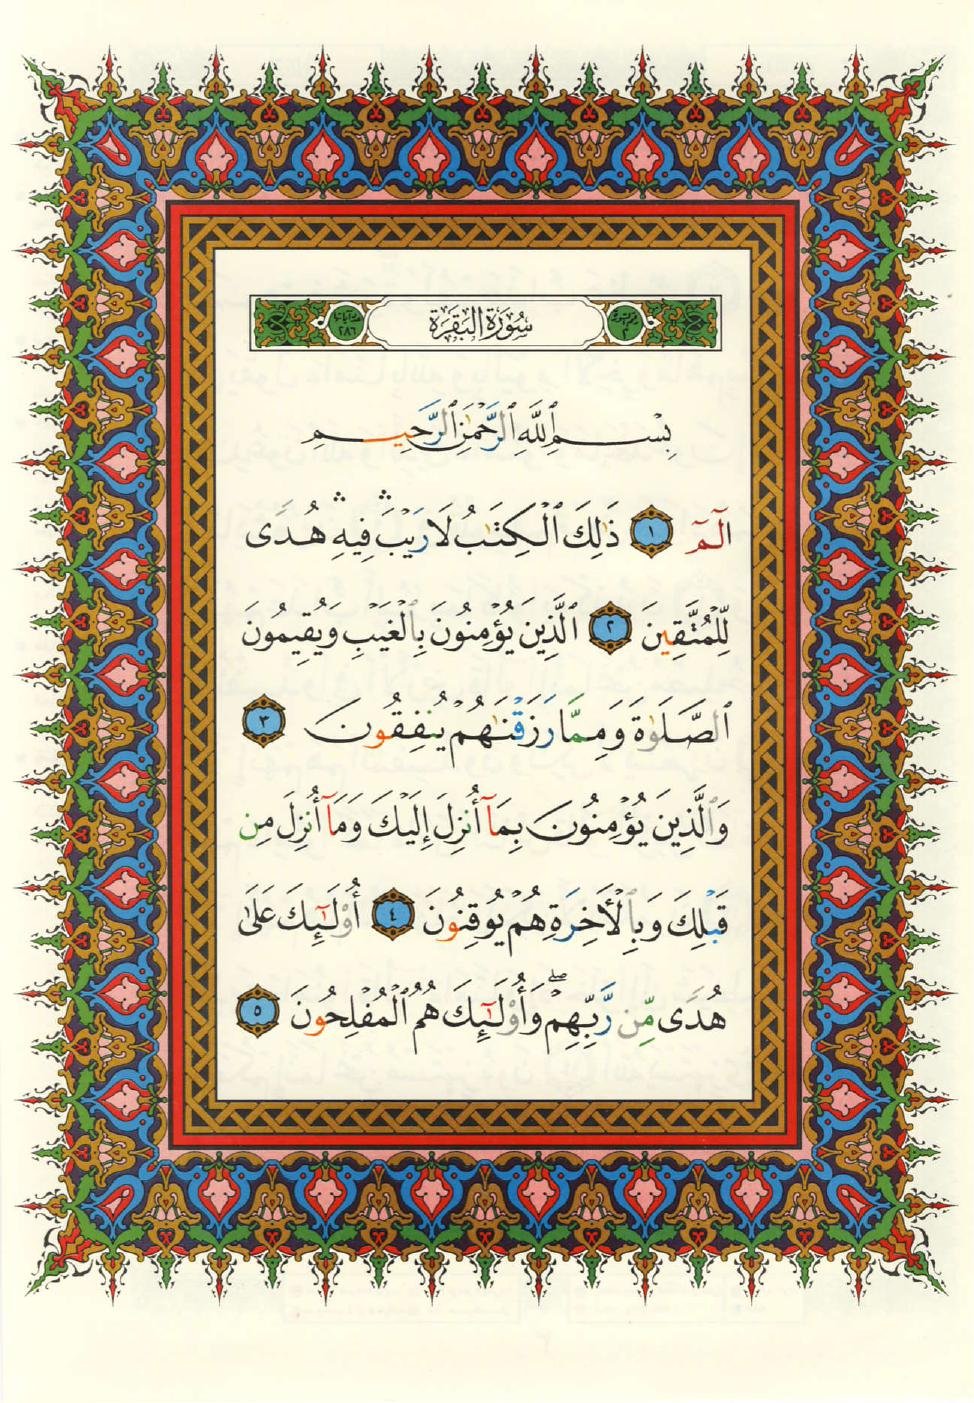 سُورَةُ البَقَرَةِ
ترتيبها ٢
آياتها ٢٨٦
بِسْمِ ٱللَّهِ ٱلرَّحْمَٰنِ ٱلرَّحِيمِ
الٓمٓ ١ ذَٰلِكَ ٱلْكِتَٰبُ لَا رَيْبَ ۛ فِيهِ ۛ هُدًى
لِّلْمُتَّقِينَ ٢ ٱلَّذِينَ يُؤْمِنُونَ بِٱلْغَيْبِ وَيُقِيمُونَ
ٱلصَّلَوٰةَ وَمِمَّا رَزَقْنَٰهُمْ يُنفِقُونَ ٣
وَٱلَّذِينَ يُؤْمِنُونَ بِمَآ أُنزِلَ إِلَيْكَ وَمَآ أُنزِلَ مِن
قَبْلِكَ وَبِٱلْأَخِرَةِ هُمْ يُوقِنُونَ ٤ أُو۟لَٰٓئِكَ عَلَىٰ
هُدًى مِّن رَّبِّهِمْ ۖ وَأُو۟لَٰٓئِكَ هُمُ ٱلْمُفْلِحُونَ ٥